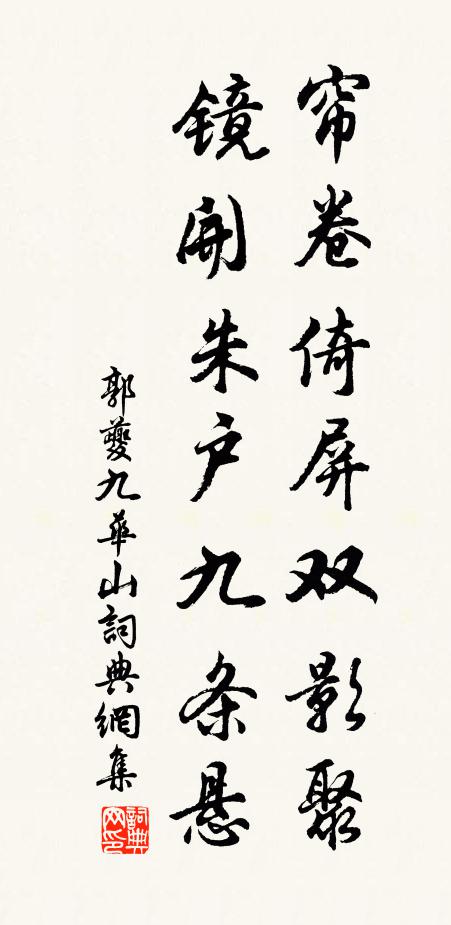 帘卷倚屏双影聚
镜开朱户九条悬
郭夔九华山詞典網集
詞典
网印